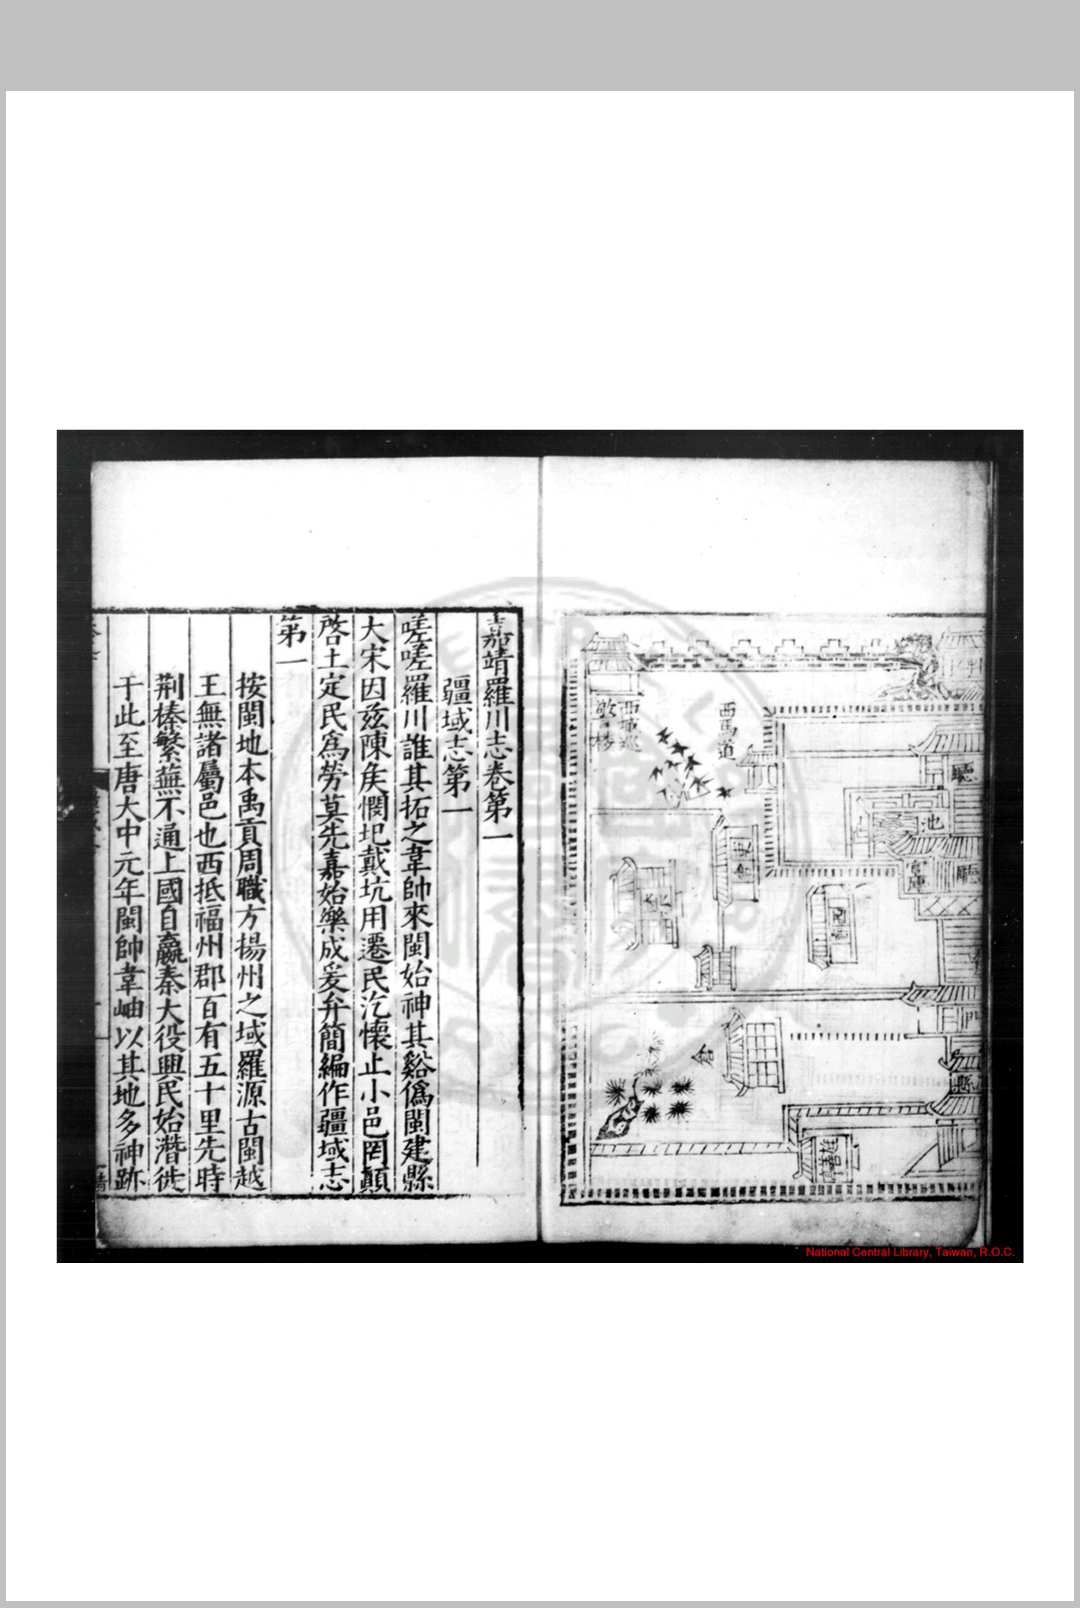 西馬道
廳
池
官庫
廳
吏舍
門
縣
倉
嘉靖羅川志卷第一
疆域志第一
嗟嗟羅川誰其拓之韋帥來閩始神其谿偽閩建縣
大宋因茲陳矦憫圯戴坑用遷民汔懷止小邑罔顛
啓土定民為勞莫先嘉始樂成爰弁簡編作疆域志
第一
按閩地本禹貢周職方揚州之域羅源古閩越
王無諸屬邑也西抵福州郡百有五十里先時
荆榛繁蕪不通上國自嬴秦大役興民始潛徙
于此至唐大中元年閩帥韋岫以其地多神跡
National Central Library, Taiwan, R.O.C.